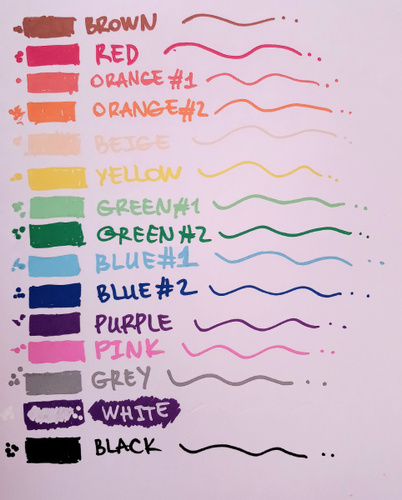 BROWN
RED
ORANGE #1
ORANGE #2
BEIGE
YELLOW
GREEN #1
GREEN #2
BLUE #1
BLUE #2
PURPLE
PINK
GREY
WHITE
BLACK